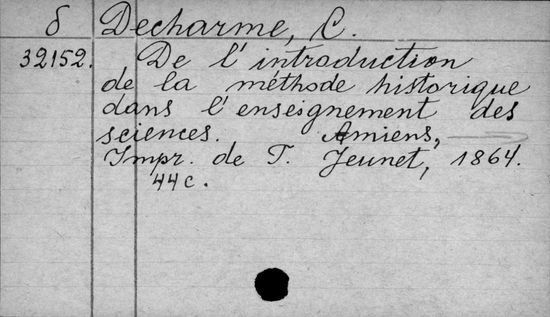 δ Decharme, C.
32152. De l'introduction
de la méthode historique
dans l'enseignement des
sciences. Amiens,
Impr. de T. Jeunet, 1864.
44 c.